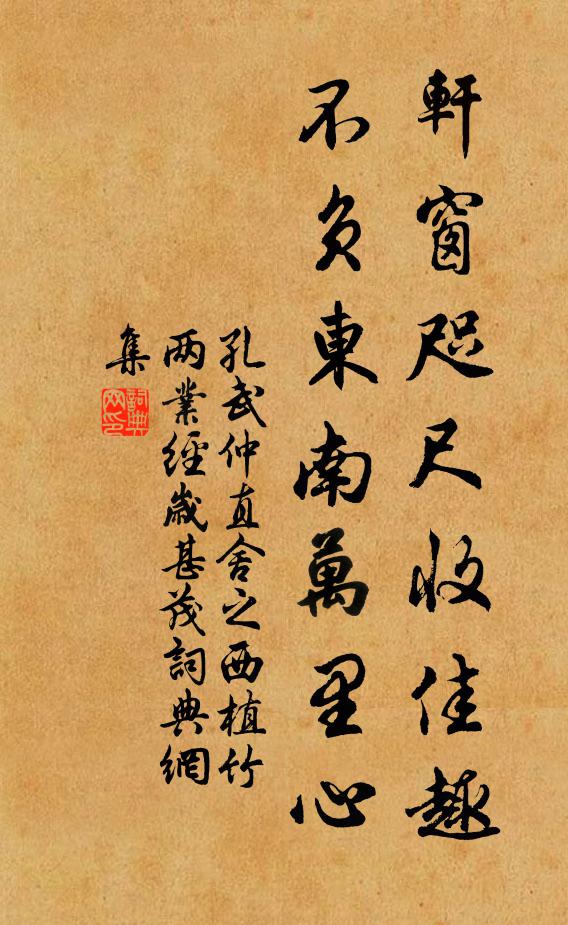 軒窗咫尺收佳趣
不負東南萬里心
孔武仲直舍之西植竹
两業經歲甚茂詞典網
集
詞典
网印